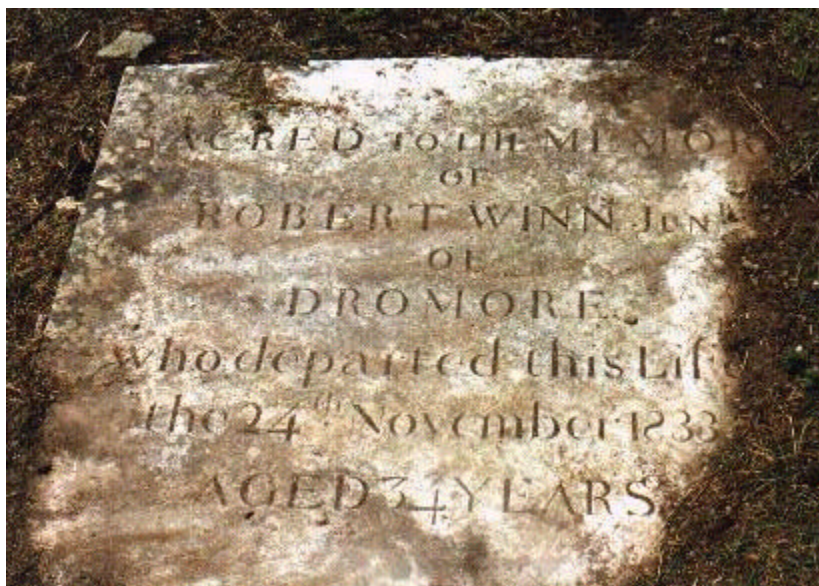 SACRED TO THE MEMOR
OF
ROBERT WINN Junr
OF
DROMORE
who departed this Life
the 24th November 1833
AGED 34 YEARS